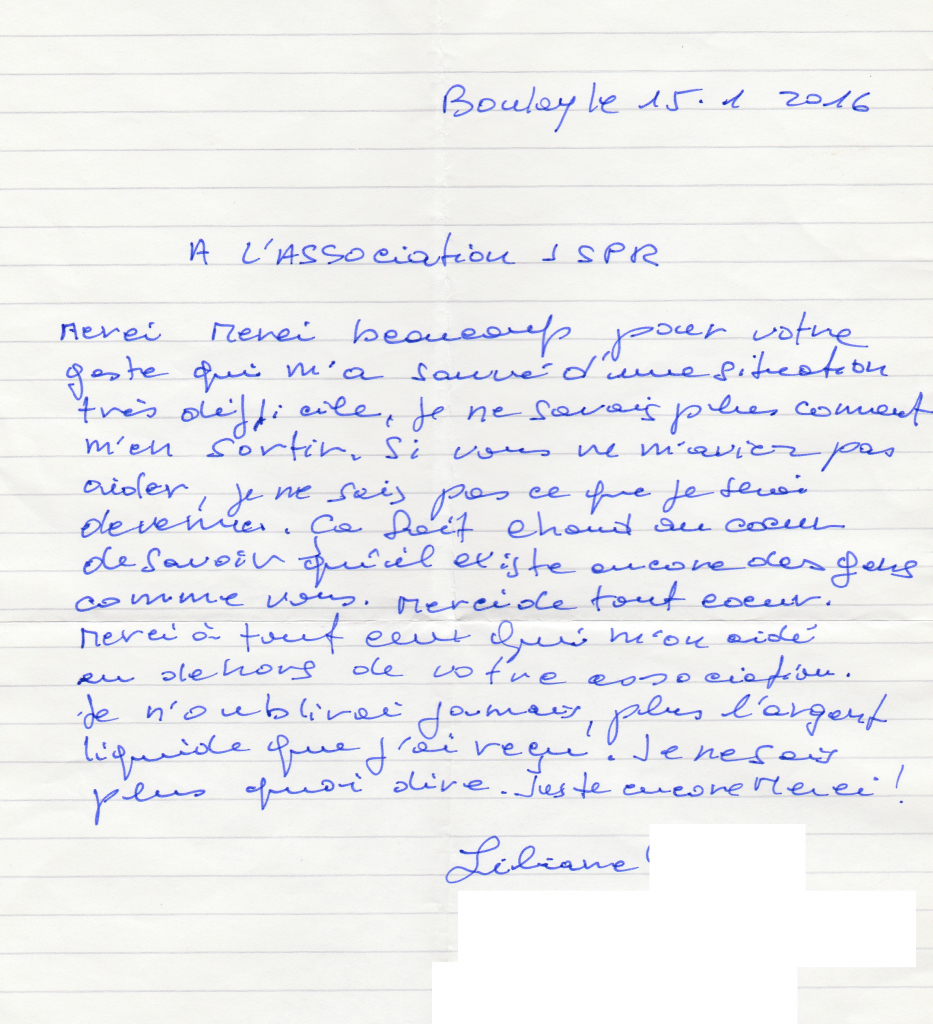 Boulay le 15.1 2016
A L'ASSociation JSPR
Merci Merci beaucoup pour votre
geste qui m'a sauvé d'une situation
très difficile, je ne savais plus comment
m'en sortir. Si vous ne m'aviez pas
aider, je ne sais pas ce que je serai
devenue. Ca fait chaud au coeur
de savoir qu'il existe encore des gens
comme vous. Merci de tout coeur.
Merci à tout ceux qui m'on aidé
en dehors de votre association.
Je n'oublirai jamais, plus l'argent
liquide que j'ai reçu. Je ne sais
plus quoi dire. Juste encore Merci !
Liliane